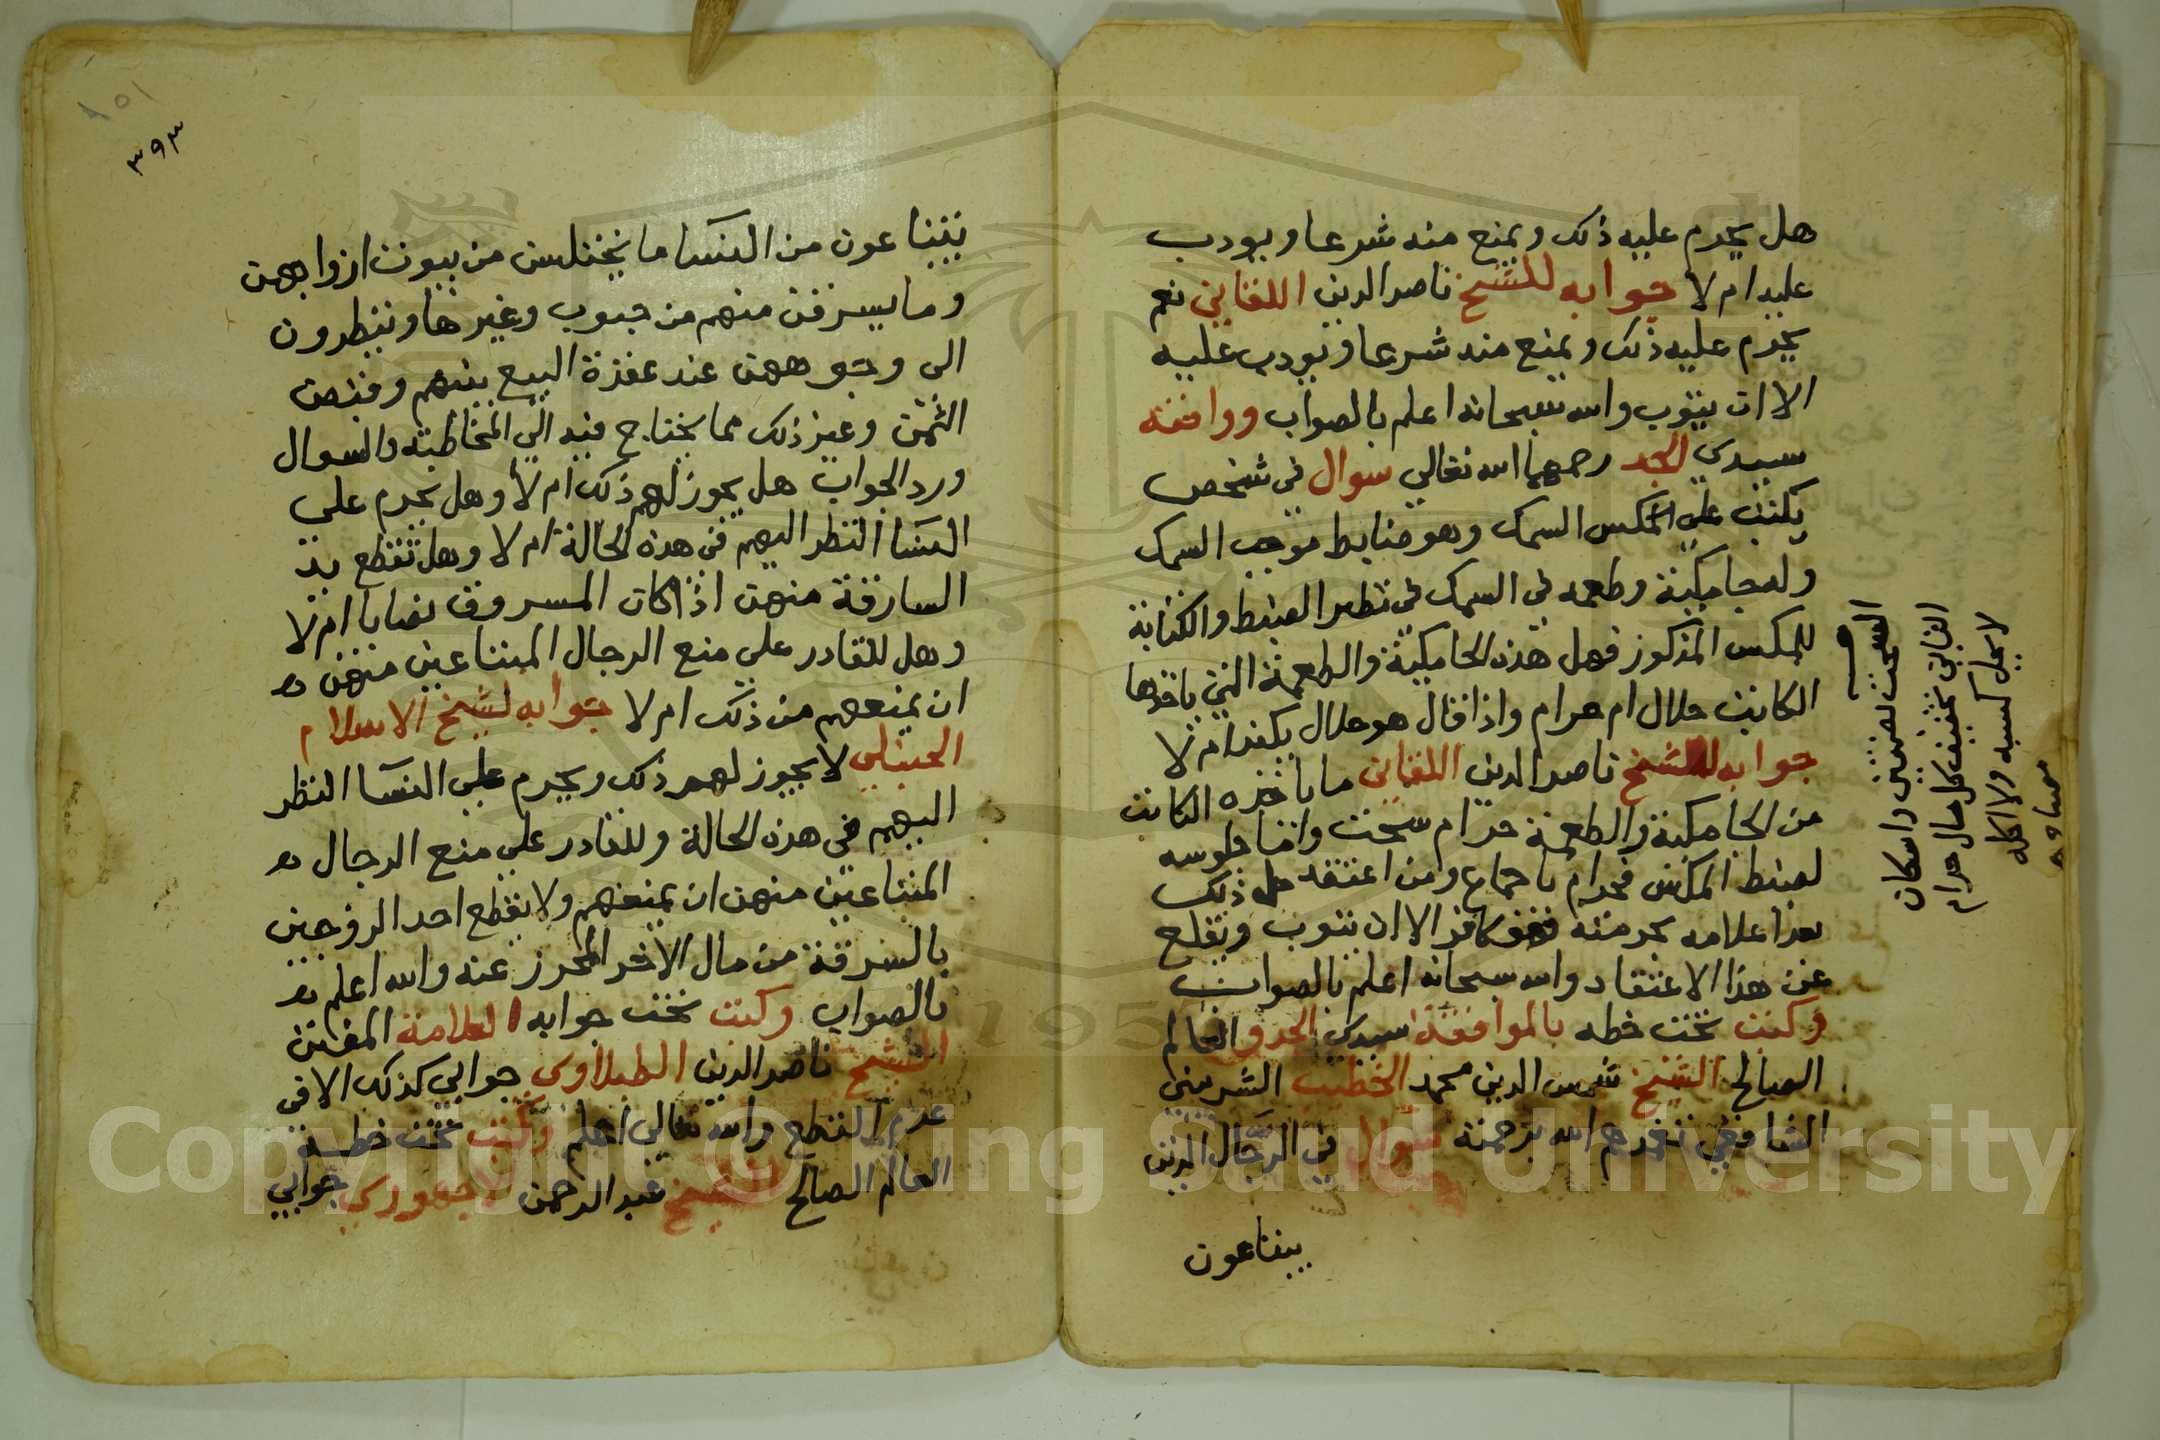 هل يحرم عليه ذلك ويمنع منه شرعا ويودب
عليه ام لا جوابه للشيخ ناصر الدين اللقاني نعم
يحرم عليه ذلك ويمنع منه شرعا ويودب عليه
الا ان يتوب والله سبحانه اعلم بالصواب ووافقه
سيدي الجد رحمهما الله تعالي سوال في شخص
يكتب علي المكس السمك وهو ضابط موجب السمك
وله جامكية وطعمه في السمك في نظير الضبط والكتابة
للمكس المذكور فهل هذه الجامكية والطعمة التي ياخذها
الكاتب حلال ام حرام واذا قال هو حلال يكفر ام لا
جوابه للشيخ ناصر الدين اللقاني ما ياخذه الكاتب
من الجامكية والطعمة حرام سحت واما جلوسه
لضبط المكس فحرام باجماع ومن اعتقد حل ذلك
بعد اعلامه بحرمته فهو كافر الا ان يتوب ويقلع
عن هذا الاعتقاد والله سبحانه اعلم بالصواب
وكتب تحت خطه بالموافقة سيدي الجد والعالم
الصالح الشيخ شمس الدين محمد الخطيب الشربيني
الشافعي تغمدهم الله برحمته سوال في الرجال الذين
يبتاعون
السحت بضمتين واسكان
الثاني تخفيف كل مال حرام
لا يحل كسبه ولا اكله
مصباح
١٥١
٣٩٣
يبتاعون من النسا ما يختلسن من بيوت ازواجهن
وما يسرقن منهم من حبوب وغيرها وينظرون
الى وجوههن عند عقدة البيع بينهم وقبض
الثمن وغير ذلك مما يحتاج فيه الي المخاطبة والسوال
ورد الجواب هل يجوز لهم ذلك ام لا وهل يحرم علي
النسا النظر اليهم في هذه الحالة ام لا وهل تقطع يد
السارقة منهن اذا كان المسروق نصابا ام لا
وهل للقادر علي منع الرجال المبتاعين منهن
ان يمنعهم من ذلك ام لا جوابه لشيخ الاسلام
الحنبلي لا يجوز لهم ذلك ويحرم علي النسا النظر
اليهم في هذه الحالة وللقادر علي منع الرجال
المبتاعين منهن ان يمنعهم ولا يقطع احد الزوجين
بالسرقة من مال الاخر المحرز عنه والله اعلم
بالصواب وكتب تحت جوابه العلامة المفنن
الشيخ ناصر الدين الطبلاوي جوابي كذلك الا في
عدم القطع والله تعالي اعلم وكتب تحت خطه
العالم الصالح الشيخ عبد الرحمن الاجهوري جوابي
Copyright © King Saud University